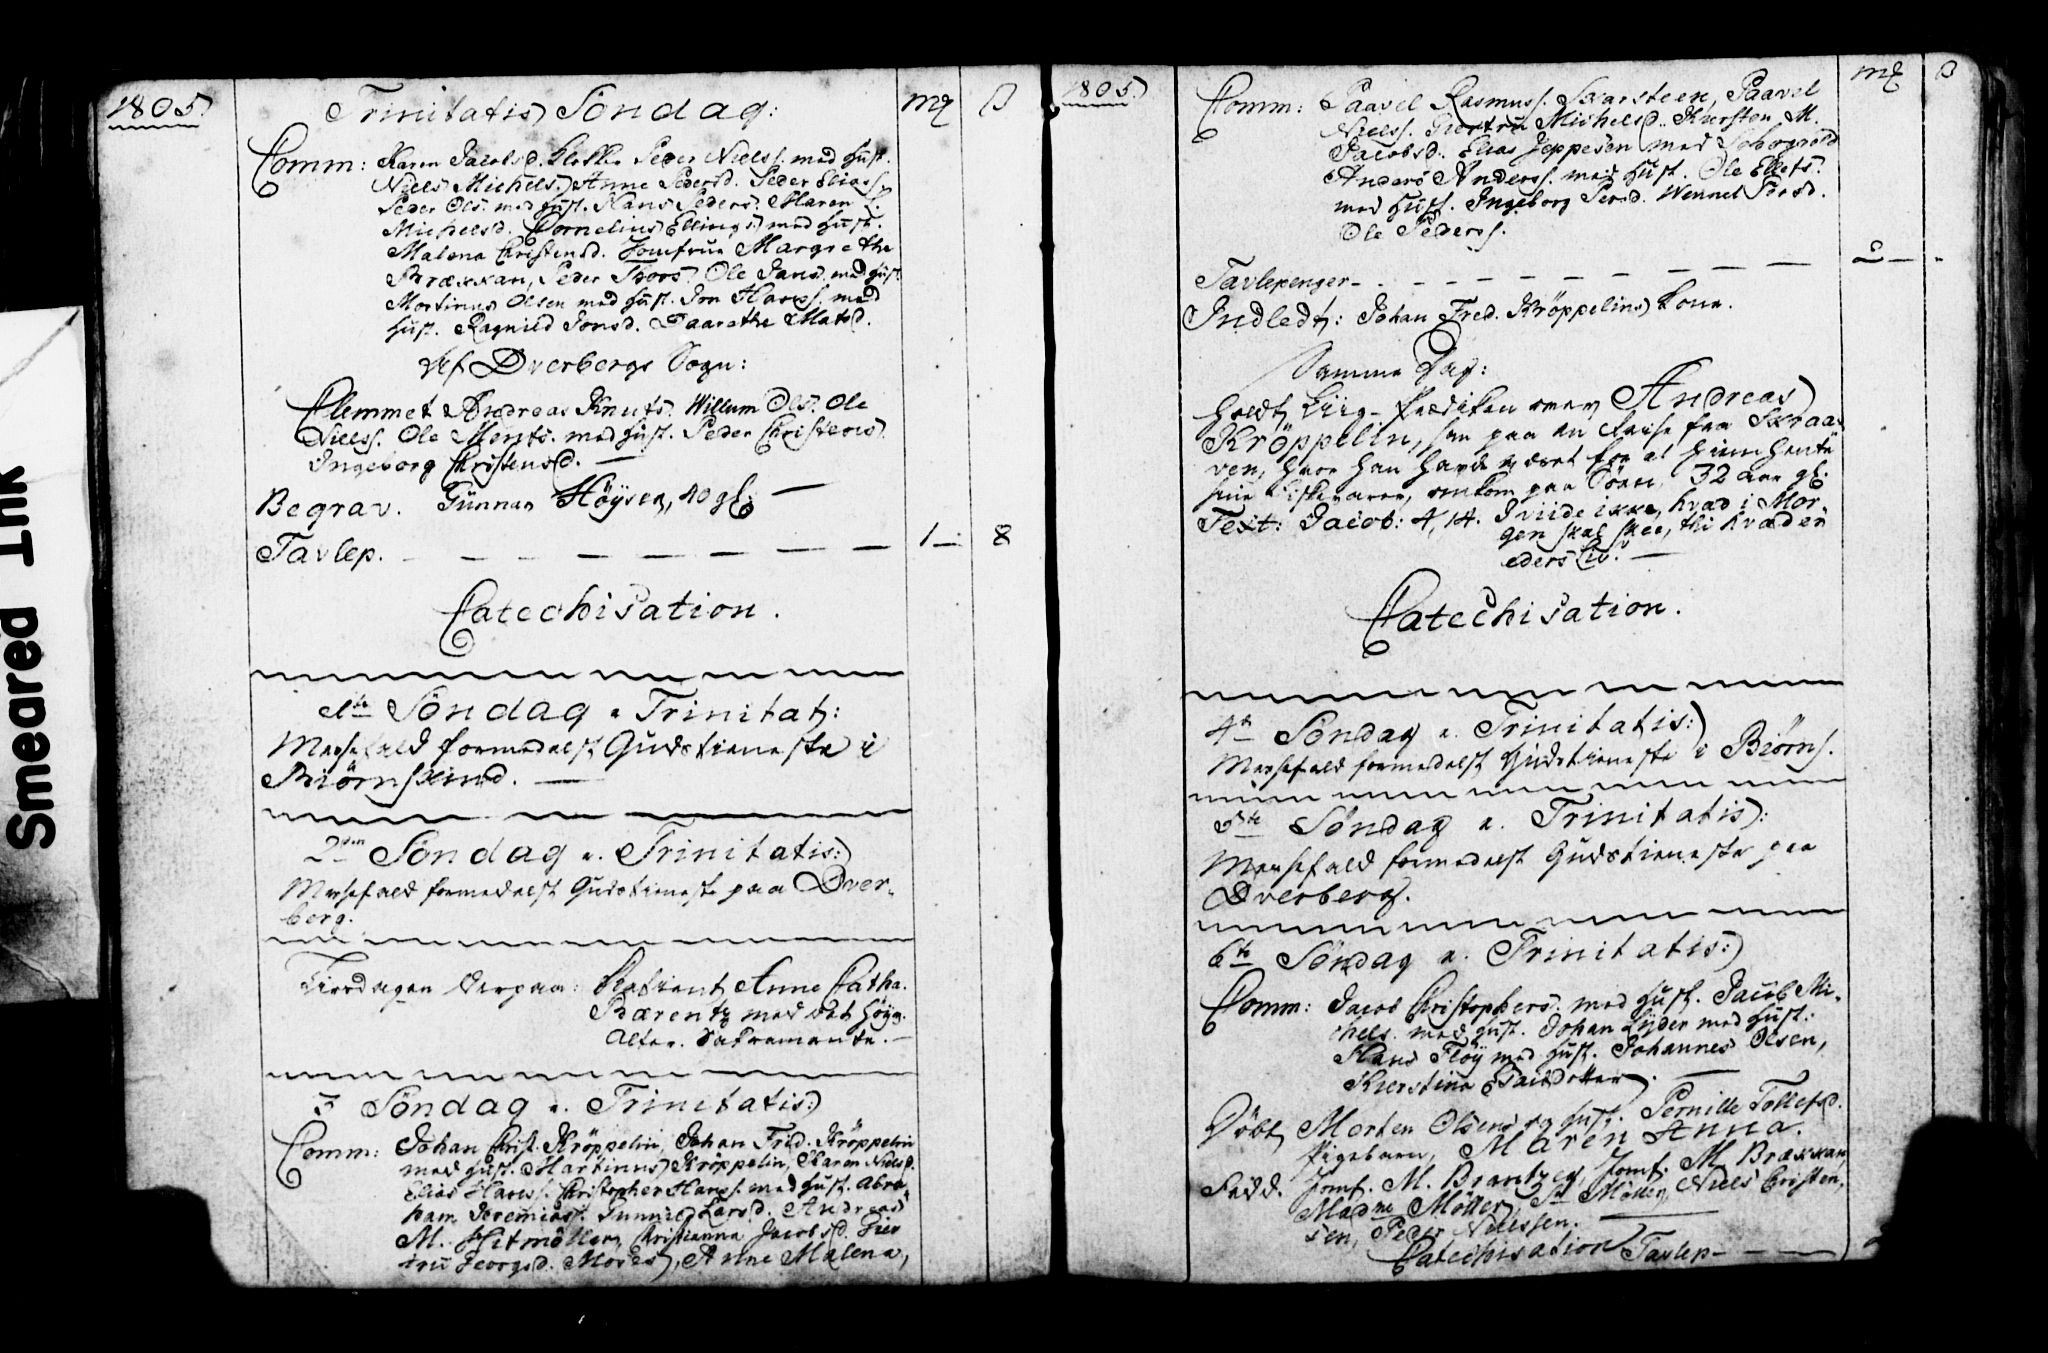 1805.
Trinitatis Söndag:
mk ß
Comm: Karen Jacobsd. Peder Nielss. med Hust.
Niels Michels. Anne Pedersd. Peder Eliass.
Peder Ols. med Hust. Hans Peders. Maren
Michelsd. Cornelius Ellings. med Hust.
Malena Christensd. Jomfrue Margrethe
Brækkan, Peder Thoes. Ole Jans. med Hust.
Mortinus Olsen med Hust. Jon Hanss. med
Hust. Ragnild Jonsd. Daarethe Matsd.
Af Dverbergs Sogn:
Clemmet Andreas Knuts. Willum Ols. Ole
Nielss. Ole Ments. med Hust. Peder Christens.
Ingeborg Christensd. —
Begrav. Gunner Höyser, 10 gl. —
Tavlep. — — — — — — — 1 — 8
Catechisation.
1te Söndag e Trinitat:
Messefald formedelst Gudstieneste i
Biörnskind. —
2den Söndag e. Trinitatis:
Messefald formedelst Gudstieneste paa Dver-
berg.
Tiirsdagen derpaa: Betient Anne Catha.
Bærentz med det Høyv.
Alter. Sakramente. —
3 Söndag e. Trinitatis:
Comm: Johan Christ. Kröppelin, Johan Fred. Kröppelin
med Hust. Martinus Kröppelin, Karen Nielsd.
Elias Hanss. Christopher Hanss. med Hust. Abra-
ham Jeremiass. Gunnild Larsd. Andreas
M. Hitmöller, Christianna Jacobsd. Gier
tru Georgsd. Moses, Anne Malena,
1805.
mk ß
Comm: Paavel Rasmuss. Skarsteen, Paavel
Nielss. Giertru Michelsd. Kiersten M.
Jacobsd. Elias Jeppesen med
Anders Anderss. med Hust. Ole Ellefs.
med Hust. Ingeborg Persd. Wennet Persd.
Ole Peders.
Tavlepenger — — — — — — — 2 — -
Indledt: Johan Fred. Kröppelins Kone.
Samme Dag:
Holdt Liig-Prædiken over Andreas
Kröppelin, som paa en Reise fra Skraa-
ven, hvor han havde været for at hiemhente
sine Fiskevarer, omkom paa Söen, 32 Aar gl.
Text: Jacob: 4, 14. I viide ikke, hvad i Mor-
gen skal skee, thi hvad er
eders Liv. —
Catechisation.
4de Söndag e. Trinitatis:
Messefald formedelst Gudstieneste i Biörns.
5te Söndag e. Trinitatis:
Messefald formedelst Gudstieneste paa
Dverberg.
6te Söndag e. Trinitatis:
Comm: Jacob Christophers. med Hust. Jacob Mi-
chels. med Hust. Johan Lyder med Hust.
Hans Floy med Hust. Johannes Olsen,
Kierstina —
Döbt Morten Olsens og Hust. Pernille Tollefsd.
Pigebarn, Maren Anna.
Fadd. Jomf. M. Brantzeg, Jomf. M. Brækkan,
Madme Möller, Sr Möller, Niels Christen-
sen, Peder Nielssen. —
Catechisation Tavlep — — —
Smeared Ink